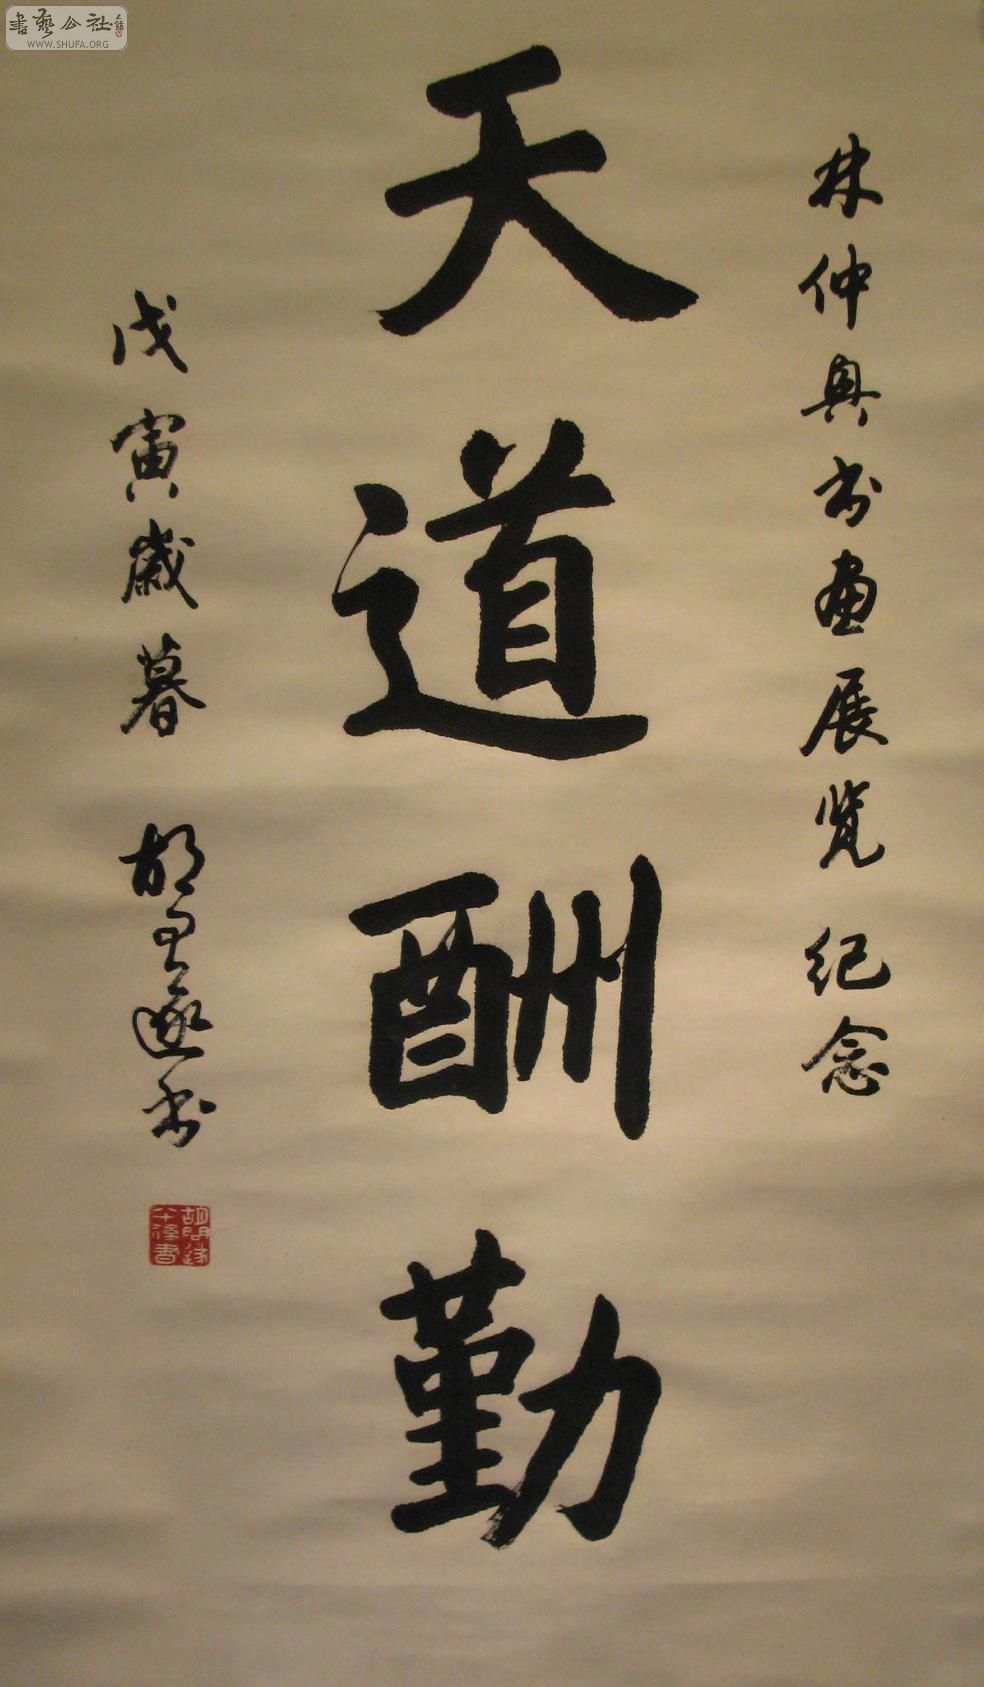 書藝公社
WWW.SHUFA.ORG
林仲興书画展览纪念
天道酬勤
戊寅歲暮 胡问遂书